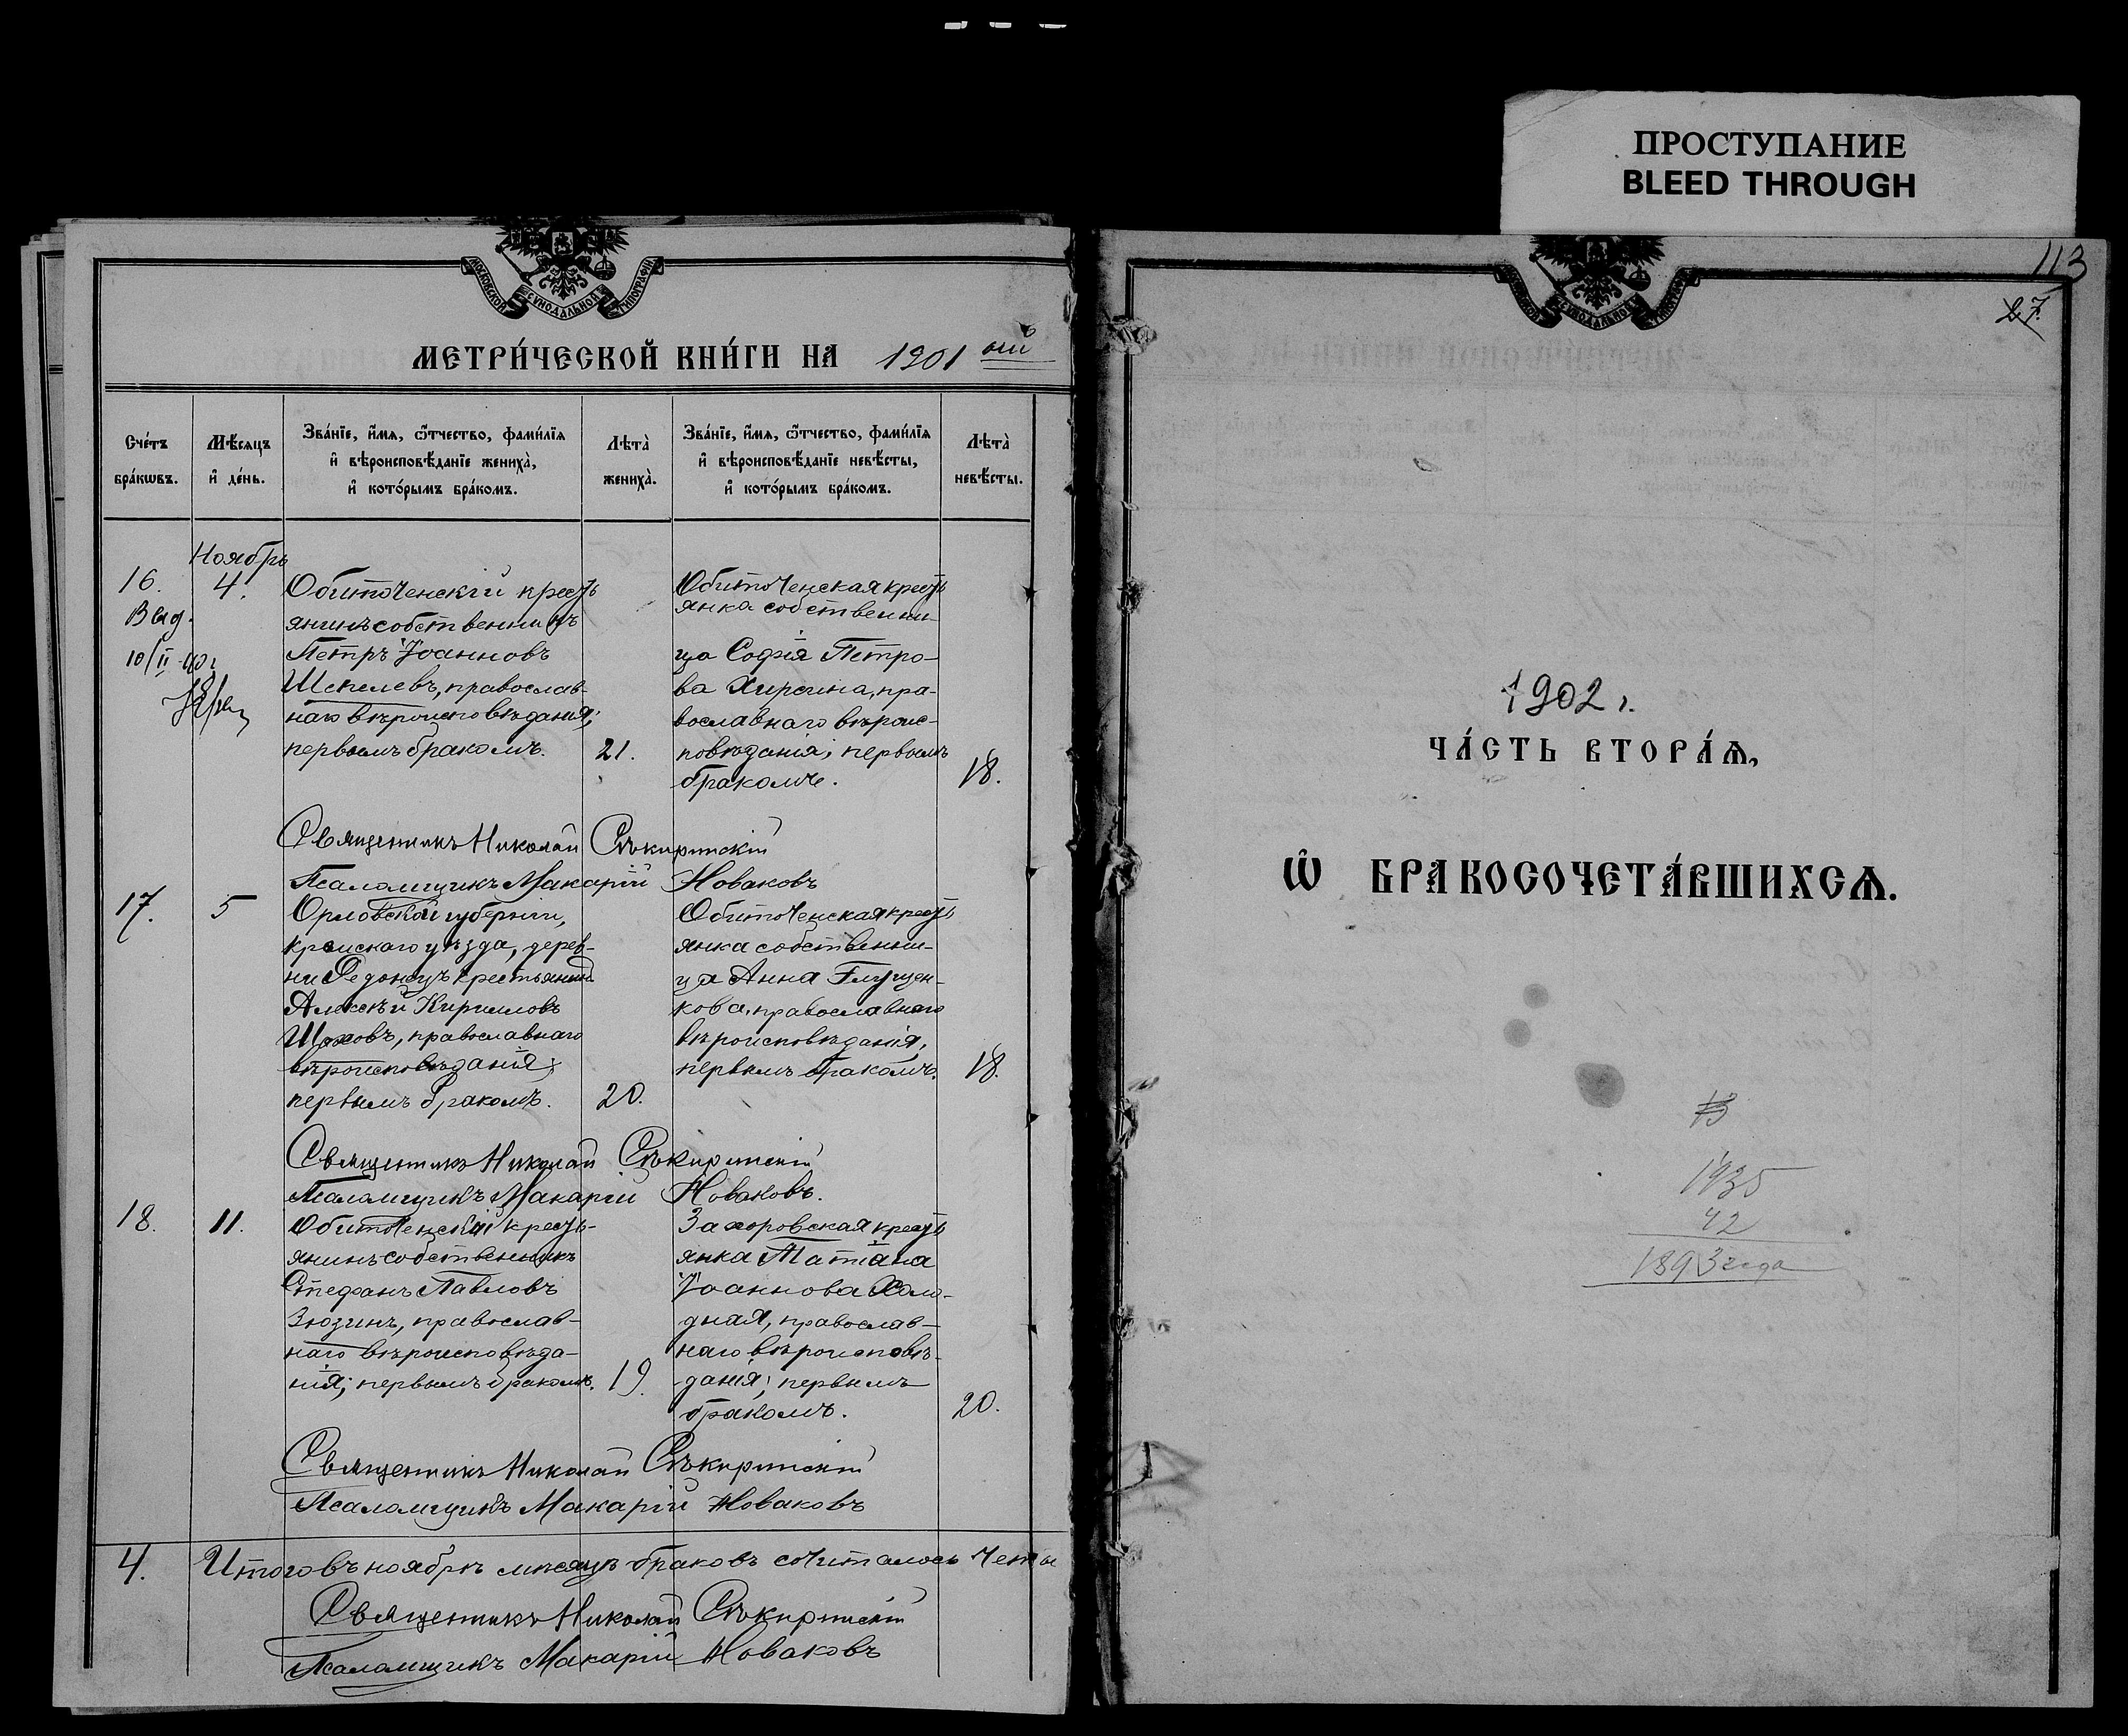 ПРОСТУПАНИЕ
BLEED THROUGH
МОСКОВСКОЙ СѴНОДАЛЬНОЙ ТИПОГРАФІИ
МЕТРИ́ЧЕСКОЙ КНИ́ГИ НА 1901 ый
Сче́тъ бра́кѡвъ.
Мѣ́сяцъ и де́нь.
Зва́нїе, и́мѧ, ѻ́тчество, фами́лїѧ и вѣроисповѣ́данїе жениха̀, и кото́рымъ бра́комъ.
Лѣта̀ жениха̀.
Зва́нїе, и́мѧ, ѻ́тчество, фами́лїѧ и вѣроисповѣ́данїе невѣ́сты, и кото́рымъ бра́комъ.
Лѣта̀ невѣ́сты.
Ноябрь
16.
4.
Выд.
10/II-40г
Обиточенскій кресть
янинъ собственникъ
Петръ Іоанновъ
Шепелевъ, православ-
наго вѣроисповѣданія;
первымъ бракомъ.
21.
Обиточенская кресть
янка собственни-
ца Софія Петро-
ва Хирсина, пра-
вославнаго вѣроис-
повѣданія; первымъ
бракомъ.
18.
Священникъ Николай Сѣкиринскій
Псаломщикъ Макарій Новаковъ
17.
5
Орловской губерніи,
кромскаго уѣзда, дерев-
ни Редонецъ крестьянинъ
Алексѣй Кирилловъ
Шоховъ, православнаго
вѣроисповѣданія;
первымъ бракомъ.
20.
Обиточенская кресть
янка собственни-
ца Анна Глущен-
кова, православнаго
вѣроисповѣданія,
первымъ бракомъ.
18.
Священникъ Николай Сѣкиринскій
Псаломщикъ Макарій Новаковъ.
18.
11.
Обиточенскій кресть-
янинъ собственникъ
Стефанъ Павловъ
Зюзинъ, православ-
наго вѣроисповѣда-
нія; первымъ бракомъ.
19.
Захоровская кресть
янка Татіана
Іоаннова Холо-
дная, православ-
наго вѣроисповѣ-
данія; первымъ
бракомъ.
20.
Священникъ Николай Сѣкиринскій
Псаломщикъ Макарій Новаковъ
4.
Итого въ ноябрѣ мѣсяцѣ браковъ считалось четы
Священникъ Николай Сѣкиринскій
Псаломщикъ Макарій Новаковъ
113
27.
1902 г.
ЧА́СТЬ ВТОРА́Ѧ,
Ѡ БРАКОСОЧЕТА́ВШИХСѦ.
13
1935
42
1893 года